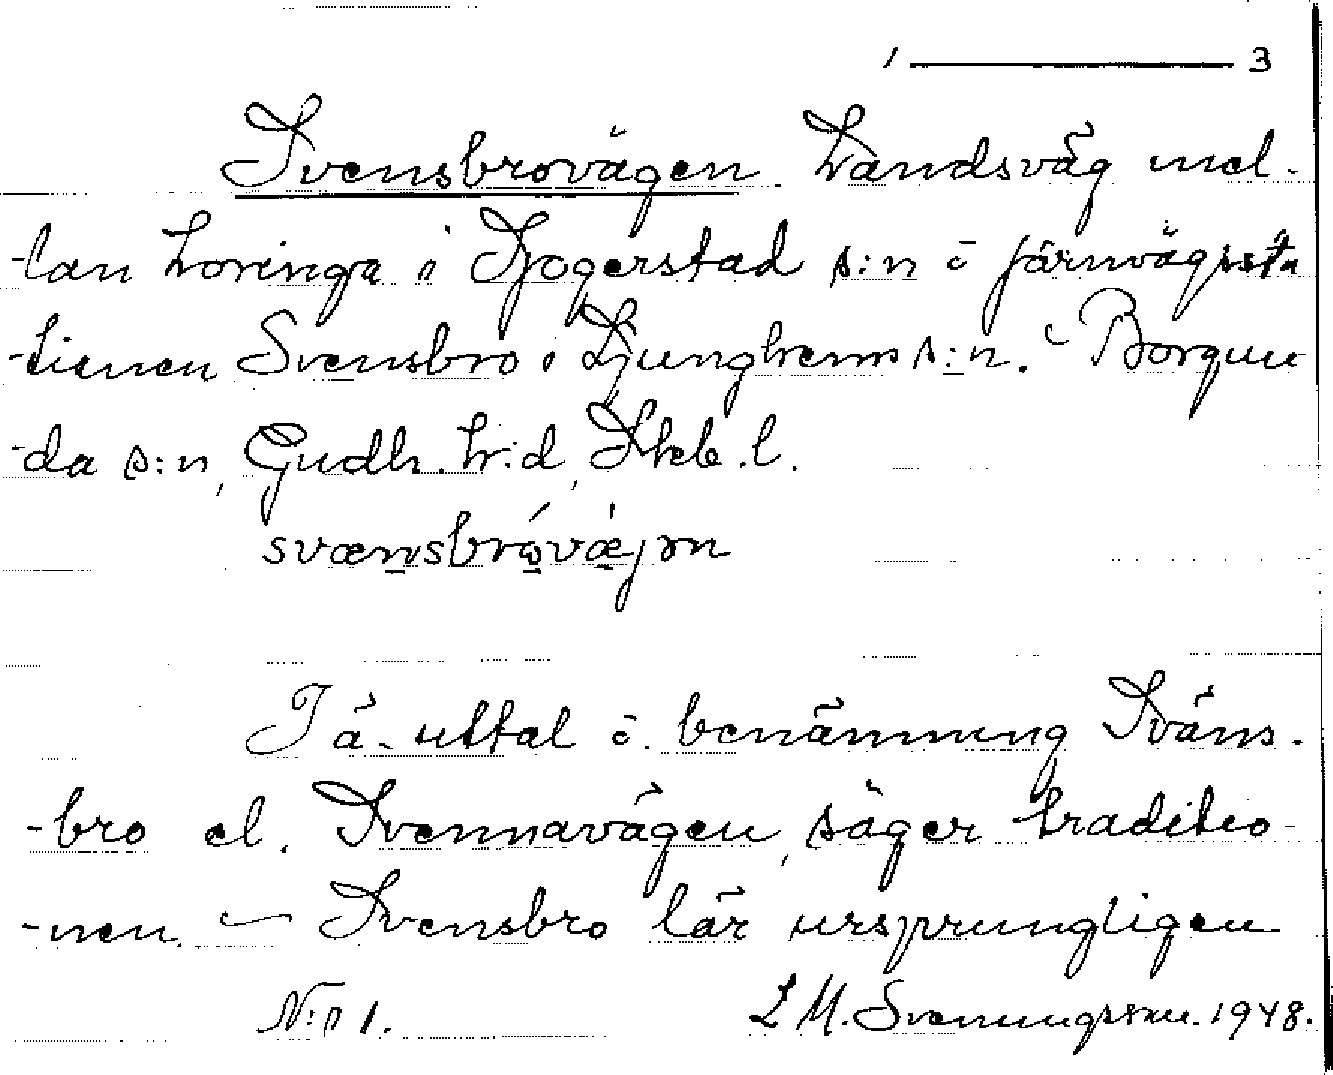 1 ——— 3
Svensbrovägen. Landsväg mel-
-lan Lovinga i Sjogerstad s:n o järnvägssta
-tionen Svensbro i Ljunghem s:n. i Borgun
-da s:n, Gudh. h:d, Skb. l.
svænsbrωvæjən
Iä-uttal o. benämning Sväns-
-bro el. Svennavägen, säger traditio-
-nen. — Svensbro lär ursprungligen
N:o 1. L M. Svenungsson. 1948.